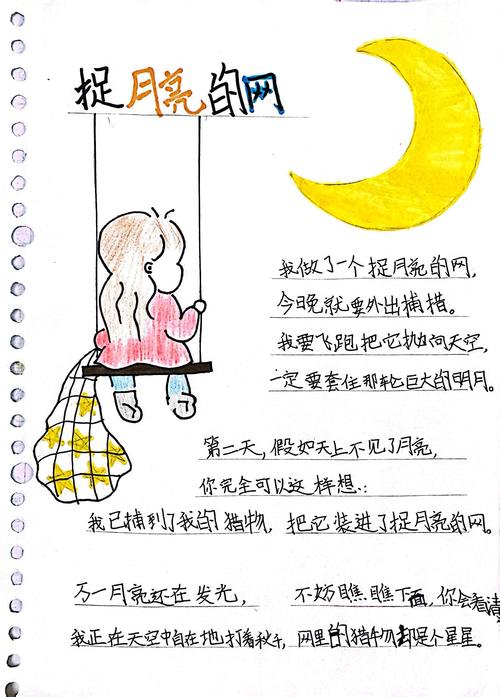 捉月亮的网
我做了一个捉月亮的网,
今晚就要外出捕猎。
我要飞跑把它抛向天空,
一定要套住那轮巨大的明月。
第二天,假如天上不见了月亮,
你完全可以这样想:
我已捕到了我的猎物, 把它装进了捉月亮的网。
万一月亮还在发光, 不妨瞧瞧下面,你会看清
我正在天空中自在地打着秋千, 网里的猎物却是个星星。